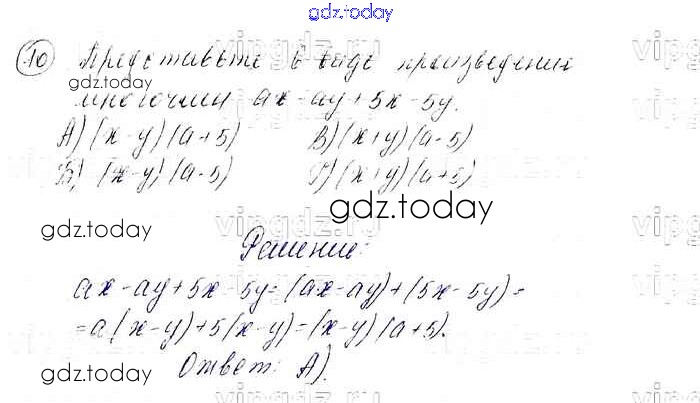 gdz.today
10) Представьте в виде произведения
gdz.today
многочлен ax - ay + 5x - 5y.
А) (x-y)(a+5) В) (x+y)(a-5)
Б) (x-y)(a-5) Г) (x+y)(a+5)
gdz.today
gdz.today vipgdz.ru
Решение:
ax - ay + 5x - 5y = (ax - ay) + (5x - 5y) =
= a(x-y) + 5(x-y) = (x-y)(a+5).
gdz.today Ответ: А).